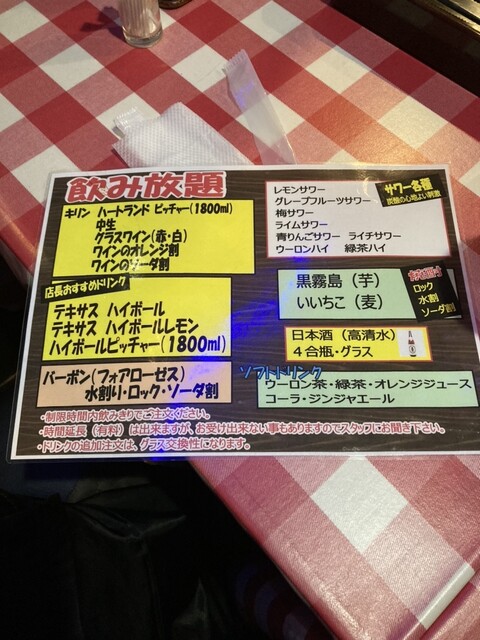 飲み放題
キリン ハートランド ピッチャー(1800ml)
中生
グラスワイン(赤・白)
ワインのオレンジ割
ワインのソーダ割
店長おすすめドリンク
テキサス ハイボール
テキサス ハイボールレモン
ハイボールピッチャー(1800ml)
バーボン(フォアローゼス)
水割り・ロック・ソーダ割
サワー各種
炭酸の心地よい刺激
レモンサワー
グレープフルーツサワー
梅サワー
ライムサワー
青りんごサワー ライチサワー
ウーロンハイ 緑茶ハイ
黒霧島(芋)
いいちこ(麦)
ロック
水割
ソーダ割
日本酒(高清水)
4合瓶・グラス
ソフトドリンク
ウーロン茶・緑茶・オレンジジュース
コーラ・ジンジャエール
・制限時間内飲みきりでご注文ください。
・時間延長(有料)は出来ますが、お受け出来ない事もありますのでスタッフにお聞き下さい。
・ドリンクの追加注文は、グラス交換性になります。